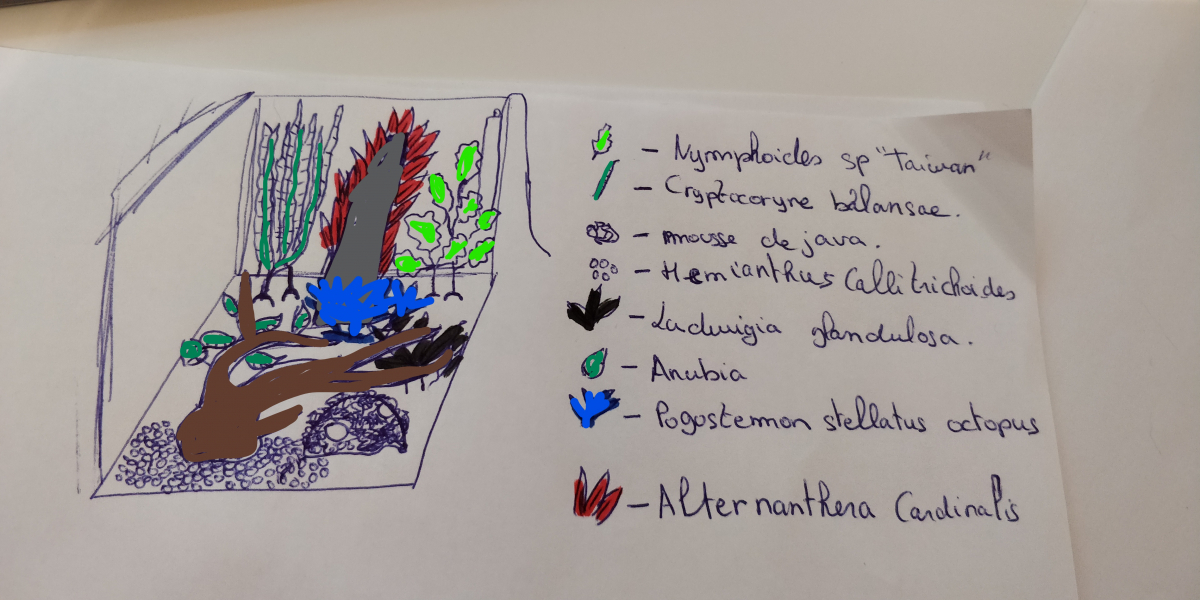 — Nymphoides sp "taiwan"
— Cryptocoryne balansae.
— mousse de java.
— Hemianthus Callitrichoides
— Ludwigia glandulosa.
— Anubia
— Pogostemon stellatus octopus
— Alternanthera Cardinalis